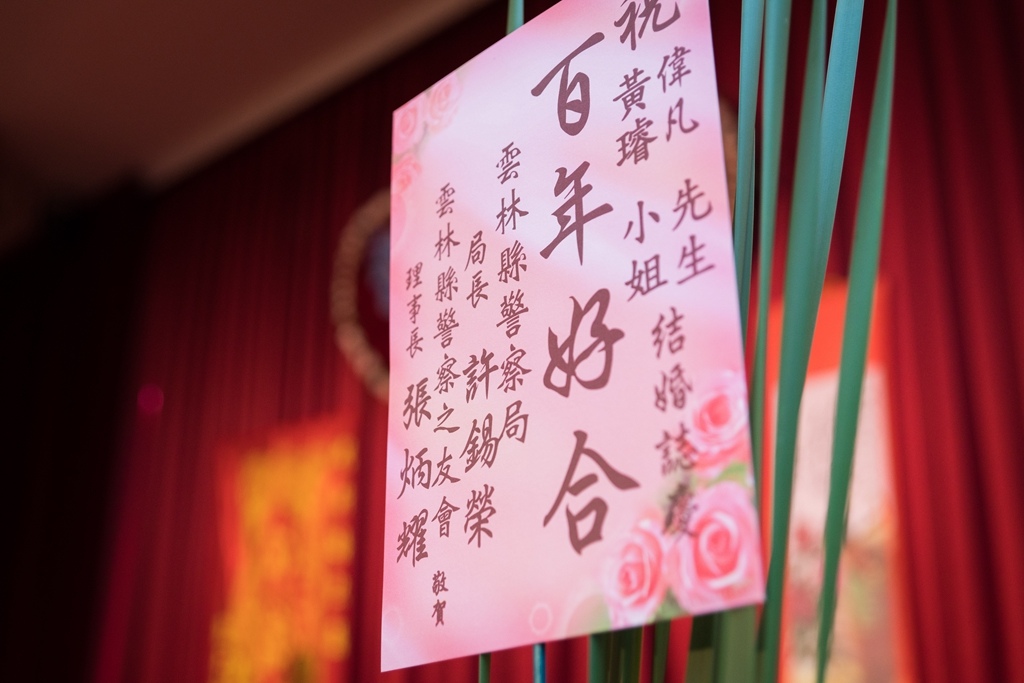 祝
偉凡 先生
黃璿 小姐 結婚誌慶
百年好合
雲林縣警察局
局長 許錫榮
雲林縣警察之友會
理事長 張炳耀 敬賀